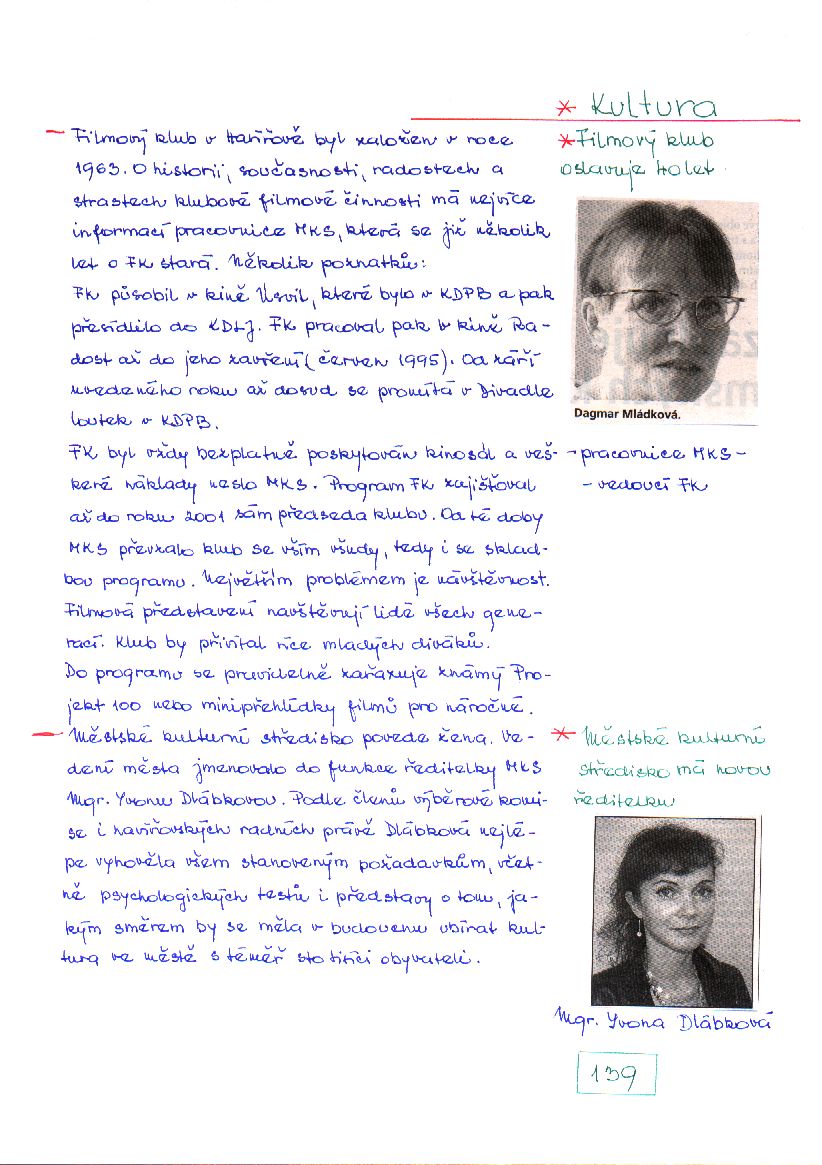 * Kultura
– Filmový klub v Havířově byl založen v roce
1963. O historii, současnosti, radostech a
strastech klubové filmové činnosti má nejvíce
informací pracovnice MKS, která se již několik
let o FK stará. Několik poznatků:
FK působil v kině Úsvit, které bylo v KDPB a pak
přesídlilo do KDLJ. FK pracoval pak v kině Ra-
dost až do jeho zavření (červen 1995). Od září
uvedeného roku až dosud se promítá v Divadle
loutek v KDPB.
FK byl vždy bezplatně poskytován kinosál a veš-
keré náklady neslo MKS. Program FK zajišťoval
až do roku 2001 sám předseda klubu. Od té doby
MKS převzalo klub se vším všudy, tedy i se sklad-
bou programu. Největším problémem je návštěvnost.
Filmová představení navštěvují lidé všech gene-
rací. Klub by přivítal více mladých diváků.
Do programu se pravidelně zařazuje známý Pro-
jekt 100 nebo minipřehlídky filmů pro náročné.
– Městské kulturní středisko povede žena. Ve-
dení města jmenovalo do funkce ředitelky MKS
Mgr. Yvonu Dlábkovou. Podle členů výběrové komi-
se i havířovských radních právě Dlábková nejlé-
pe vyhověla všem stanoveným požadavkům, včet-
ně psychologických testů i představy o tom, ja-
kým směrem by se měla v budoucnu ubírat kul-
tura ve městě s téměř sto tisíci obyvateli.
* Filmový klub
oslavuje 40 let
Dagmar Mládková.
– pracovnice MKS –
– vedoucí FK
* Městské kulturní
středisko má novou
ředitelku
Mgr. Yvona Dlábková
139